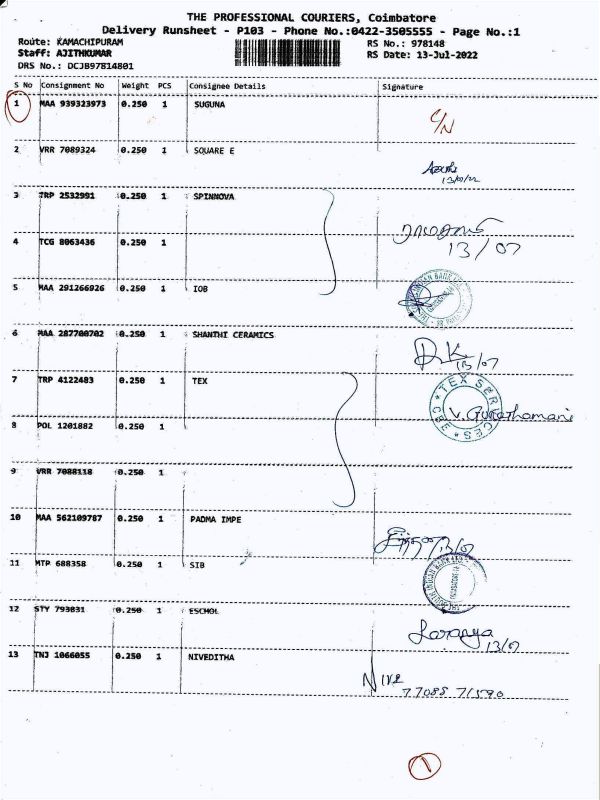 THE PROFESSIONAL COURIERS, Coimbatore
Delivery Runsheet - P103 - Phone No.:0422-3505555 - Page No.:1
Route: KAMACHIPURAM RS No.: 978148
Staff: AJITHKUMAR RS Date: 13-Jul-2022
DRS No.: DCJB97814801
S No Consignment No Weight PCS Consignee Details Signature
1 MAA 939323973 0.250 1 SUGUNA
C/N
2 VRR 7089324 0.250 1 SQUARE E
3 TRP 2532991 0.250 1 SPINNOVA
13/07
4 TCG 8063436 0.250 1
5 MAA 291266926 0.250 1 IOB
6 MAA 287700702 0.250 1 SHANTHI CERAMICS
D.K
13/07
7 TRP 4122483 0.250 1 TEX
TEX SERVICES
8 POL 1201882 0.250 1
9 VRR 7088118 0.250 1
10 MAA 562109787 0.250 1 PADMA IMPE
13/07
11 MTP 688358 0.250 1 SIB
12 STY 793031 0.250 1 ESCHOL
Saranya
13/07
13 TNJ 1066055 0.250 1 NIVEDITHA
Nive
77085 71590
1